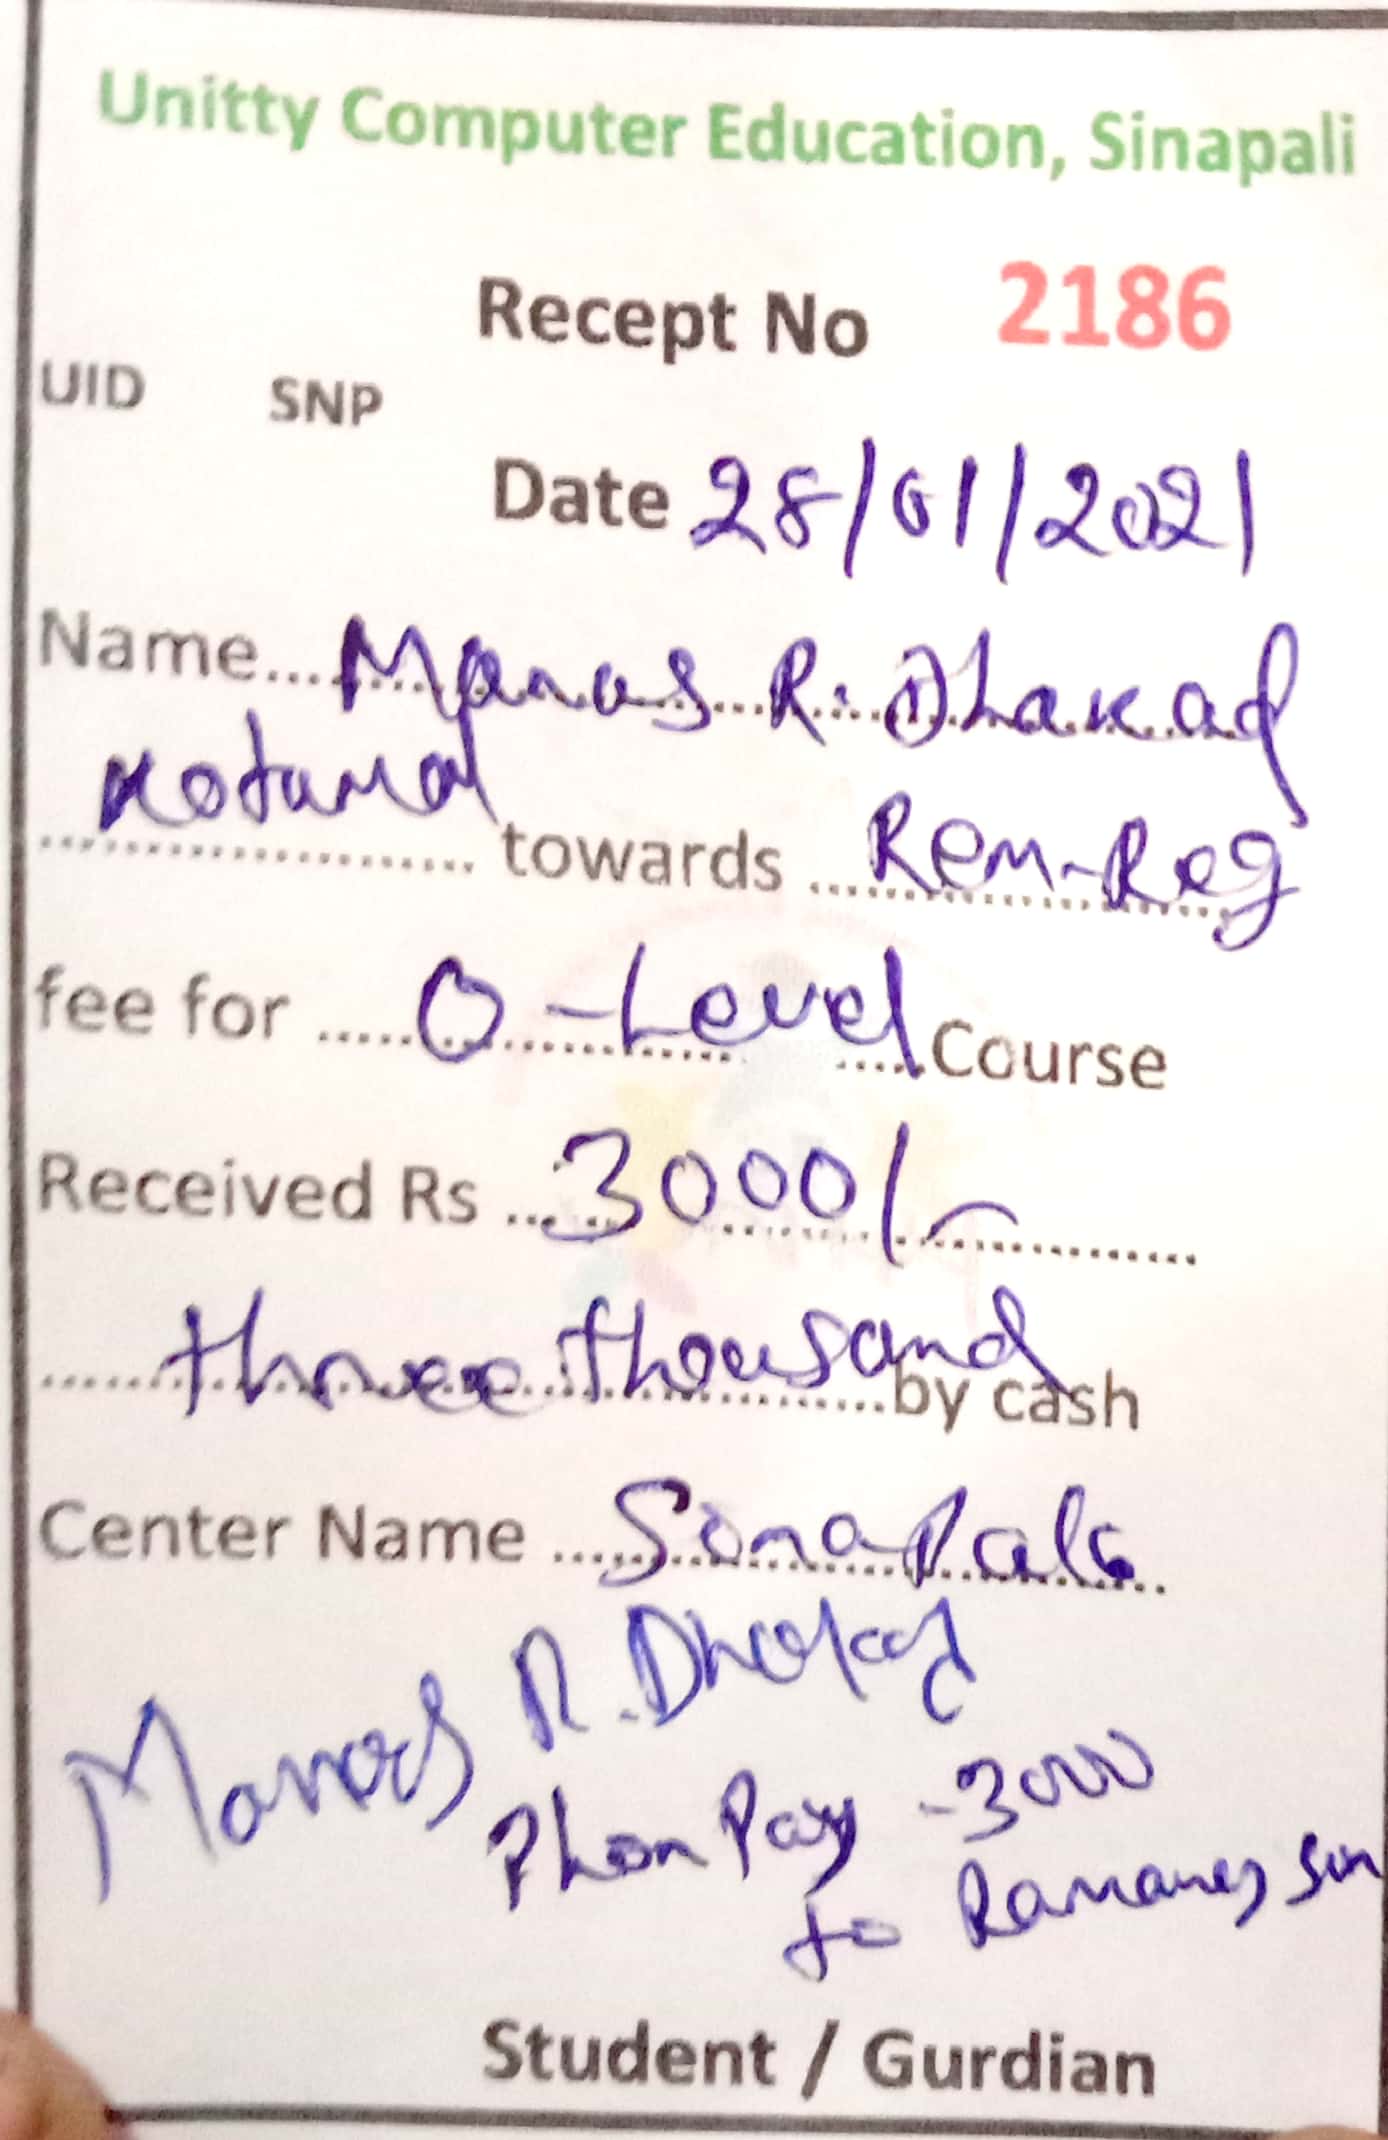 Unitty Computer Education, Sinapali
Recept No 2186
UID SNP
Date 28/01/2021
Name... Manas R. Dhakad
Kotamal
towards ... Rem-Reg
fee for ..... O-Level Course
Received Rs ... 3000/-
three thousand by cash
Center Name ... Sinapali
Manas R. Dhakad
Phon Pay - 3000
to
Student / Gurdian